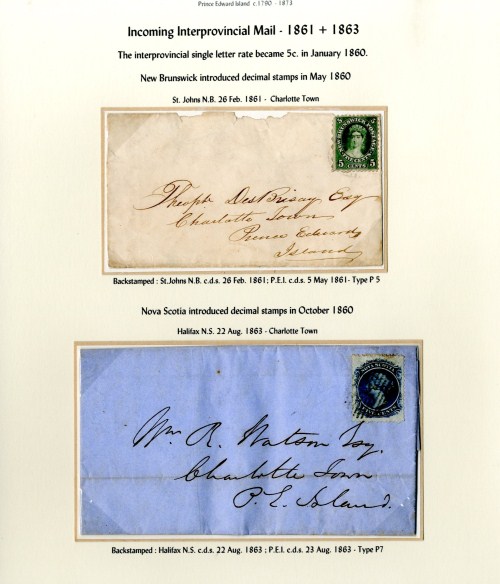 Prince Edward Island c.1790 - 1873
Incoming Interprovincial Mail - 1861 + 1863
The interprovincial single letter rate became 5c. in January 1860.
New Brunswick introduced decimal stamps in May 1860
St. Johns N.B. 26 Feb. 1861 - Charlotte Town
5 5
NEW BRUNSWICK POSTAGE
5 5
CENTS
Theoph DesBrisay Esq
Charlotte Town
Prince Edward
Island
Backstamped : St.Johns N.B. c.d.s. 26 Feb. 1861; P.E.I. c.d.s. 5 May 1861- Type P 5
Nova Scotia introduced decimal stamps in October 1860
Halifax N.S. 22 Aug. 1863 - Charlotte Town
NOVA SCOTIA
FIVE CENTS
Wm R. Watson Esq.
Charlotte Town
P. E. Island.
Backstamped : Halifax N.S. c.d.s. 22 Aug. 1863 ; P.E.I. c.d.s. 23 Aug. 1863 - Type P7